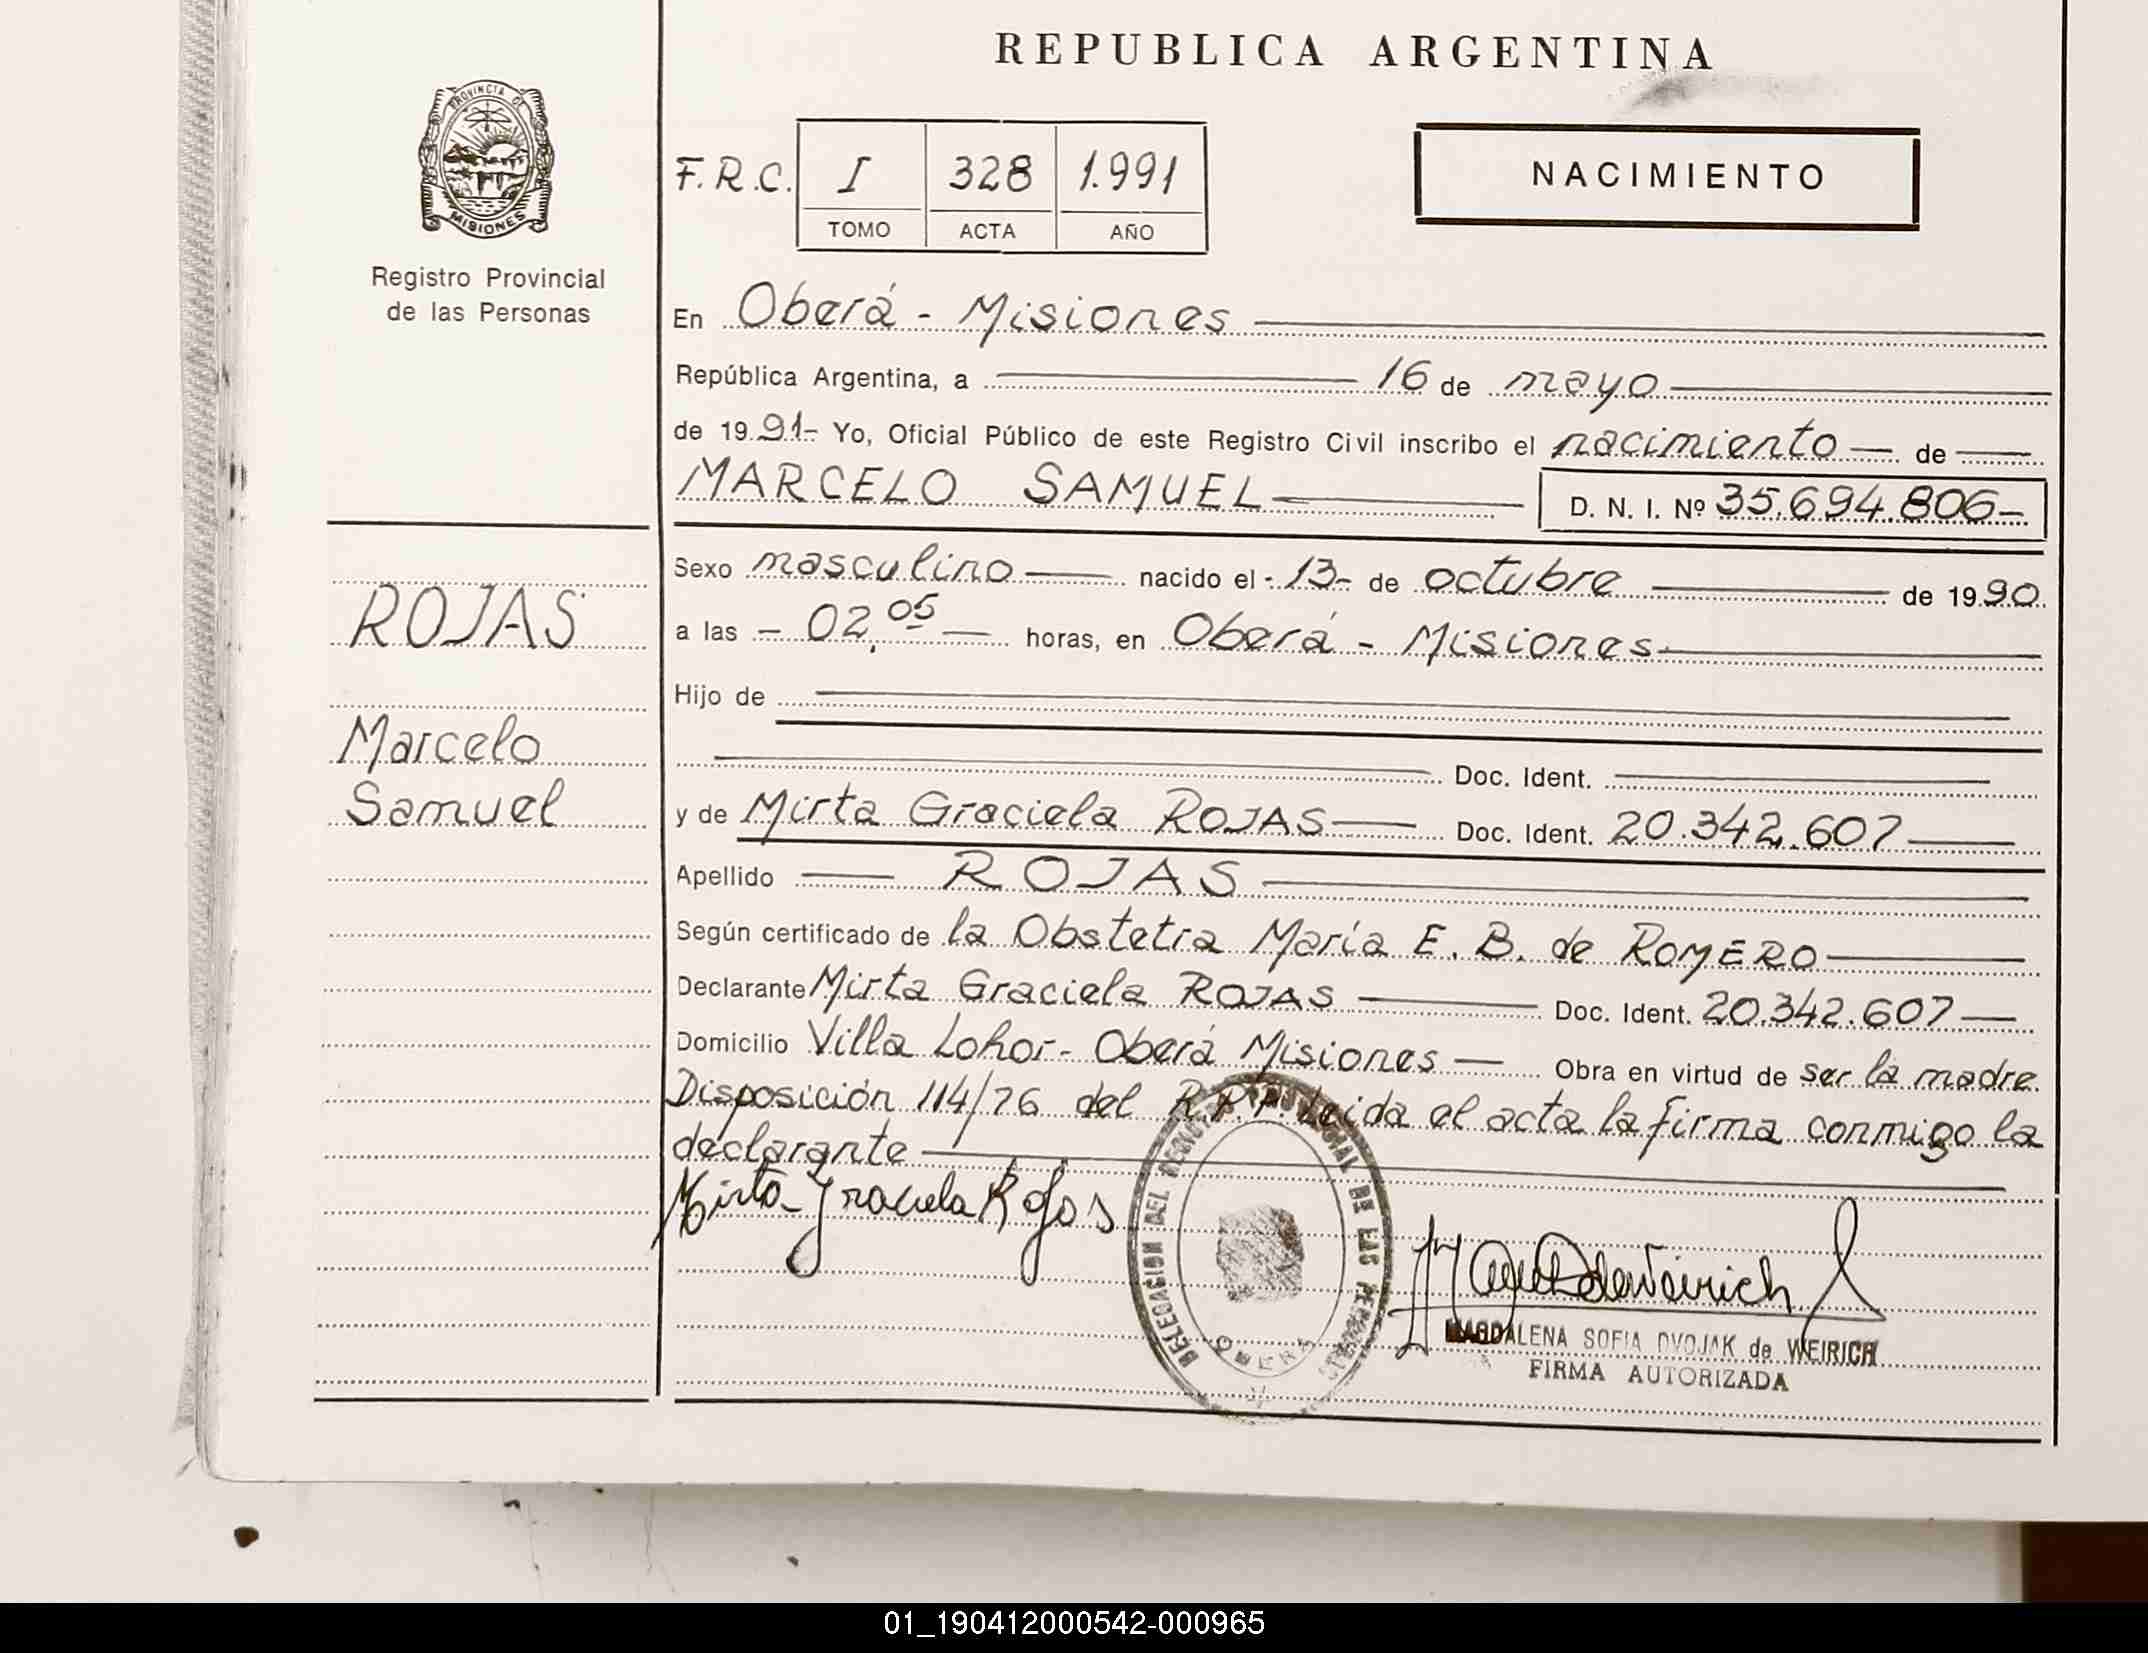 REPUBLICA ARGENTINA
PROVINCIA DE
MISIONES
Registro Provincial
de las Personas
F.R.C. I 328 1.991
TOMO ACTA AÑO
NACIMIENTO
En Oberá - Misiones
República Argentina, a 16 de mayo
de 1991- Yo, Oficial Público de este Registro Civil inscribo el nacimiento de
MARCELO SAMUEL D. N. I. Nº 35.694.806-
Sexo masculino nacido el - 13 - de octubre de 1990
a las - 02,05 horas, en Oberá - Misiones
Hijo de
Doc. Ident.
y de Mirta Graciela ROJAS Doc. Ident. 20.342.607
Apellido ROJAS
Según certificado de la Obstetra María E. B. de ROMERO
Declarante Mirta Graciela ROJAS Doc. Ident. 20.342.607
Domicilio Villa Lohor - Oberá Misiones Obra en virtud de ser la madre.
Disposición 114/76 del R.P.P. Leida el acta la firma conmigo la
declarante
Mirta Graciela Rojas
ROJAS
Marcelo
Samuel
DELEGACION DEL REGISTRO PROVINCIAL DE LAS PERSONAS
OBERA
MAGDALENA SOFIA DVOJAK de WEIRICH
FIRMA AUTORIZADA
01_190412000542-000965